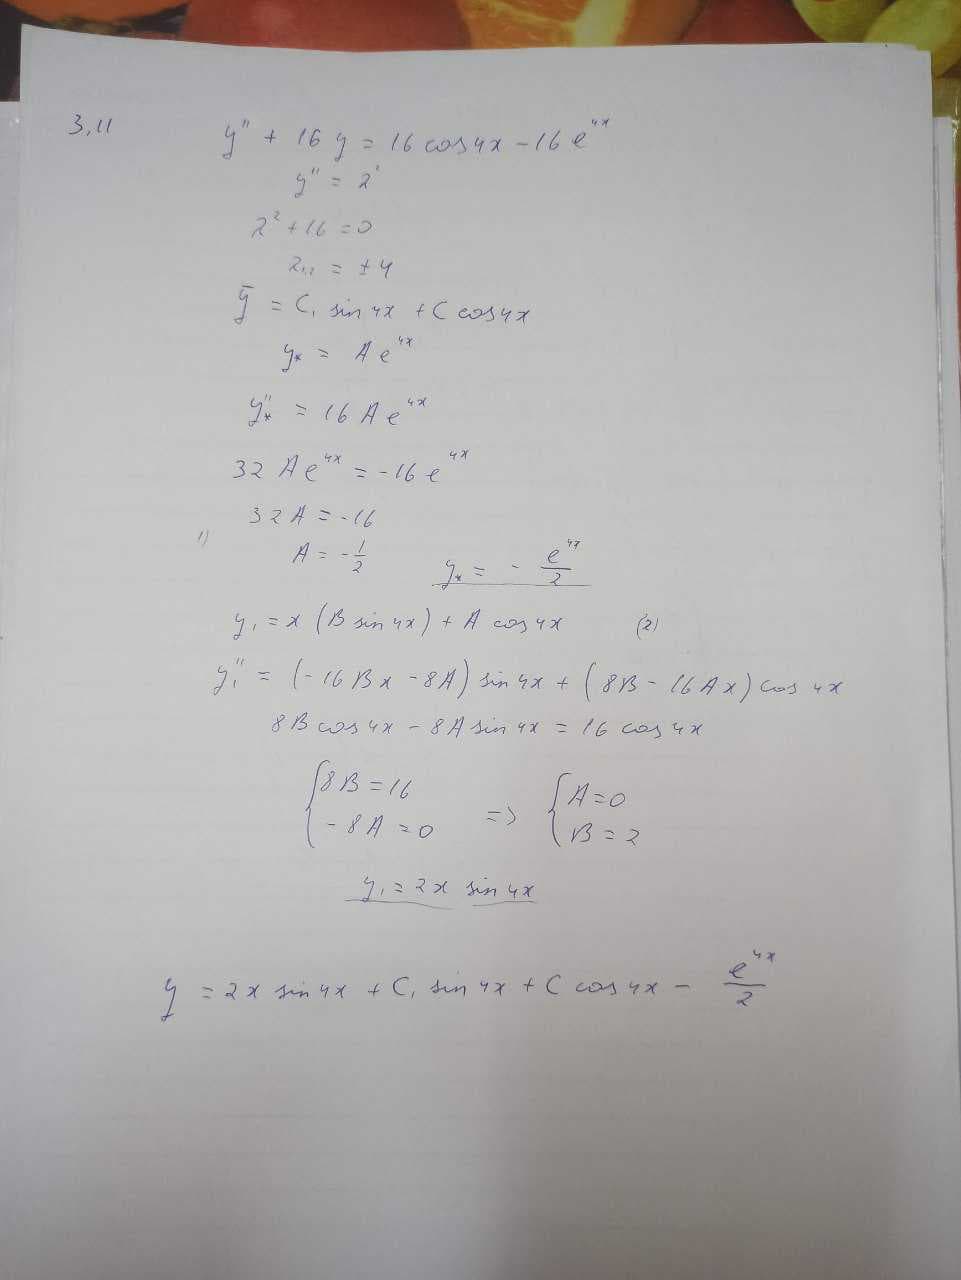 3,11
y'' + 16 y = 16 cos 4x - 16 e^{4x}
y'' = 2'
2^2 + 16 = 0
2_{1,2} = ± 4
ȳ = C_1 sin 4x + C cos 4x
y_* = A e^{4x}
y''_* = 16 A e^{4x}
32 A e^{4x} = -16 e^{4x}
32 A = -16
1) A = - 1/2 y_* = - e^{4x}/2
y_1 = x (B sin 4x) + A cos 4x (2)
y_1'' = (-16 Bx - 8A) sin 4x + (8B - 16 Ax) cos 4x
8B cos 4x - 8A sin 4x = 16 cos 4x
{ 8B = 16 { A = 0
- 8A = 0 => B = 2
y_1 = 2x sin 4x
y = 2x sin 4x + C_1 sin 4x + C cos 4x - e^{4x}/2